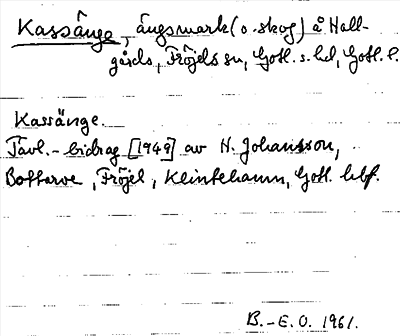 Kassänge, ängsmark (o. skog) å Hall-
gårds, Fröjels sn, Gotl. s. hd, Gotl. l.
Kassänge.
Tävl.-bidrag [1949] av H. Johansson,
Bottarve, Fröjel, Klintehamn, Gotl. hbf.
B.-E. O. 1961.